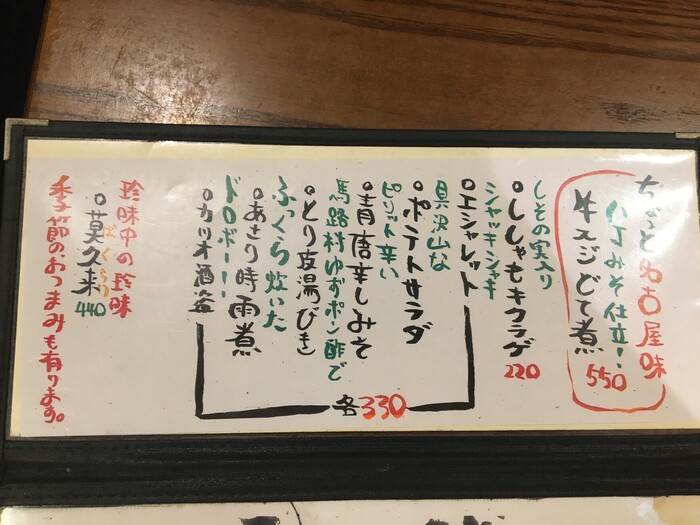 ちょっと名古屋味
八丁みそ仕立!
牛スジどて煮
550
しその実入り
ししゃもキクラゲ
220
シャッキシャキ
エシャレット
具沢山な
ポテトサラダ
ピリット辛い
青唐辛しみそ
馬路村ゆずポン酢で
とり皮湯びき
ふっくら炊いた
あさり時雨煮
ドロボー!
カツオ酒盗
各330
珍味中の珍味
莫久来
ばくらい
440
季節のおつまみも有ります。